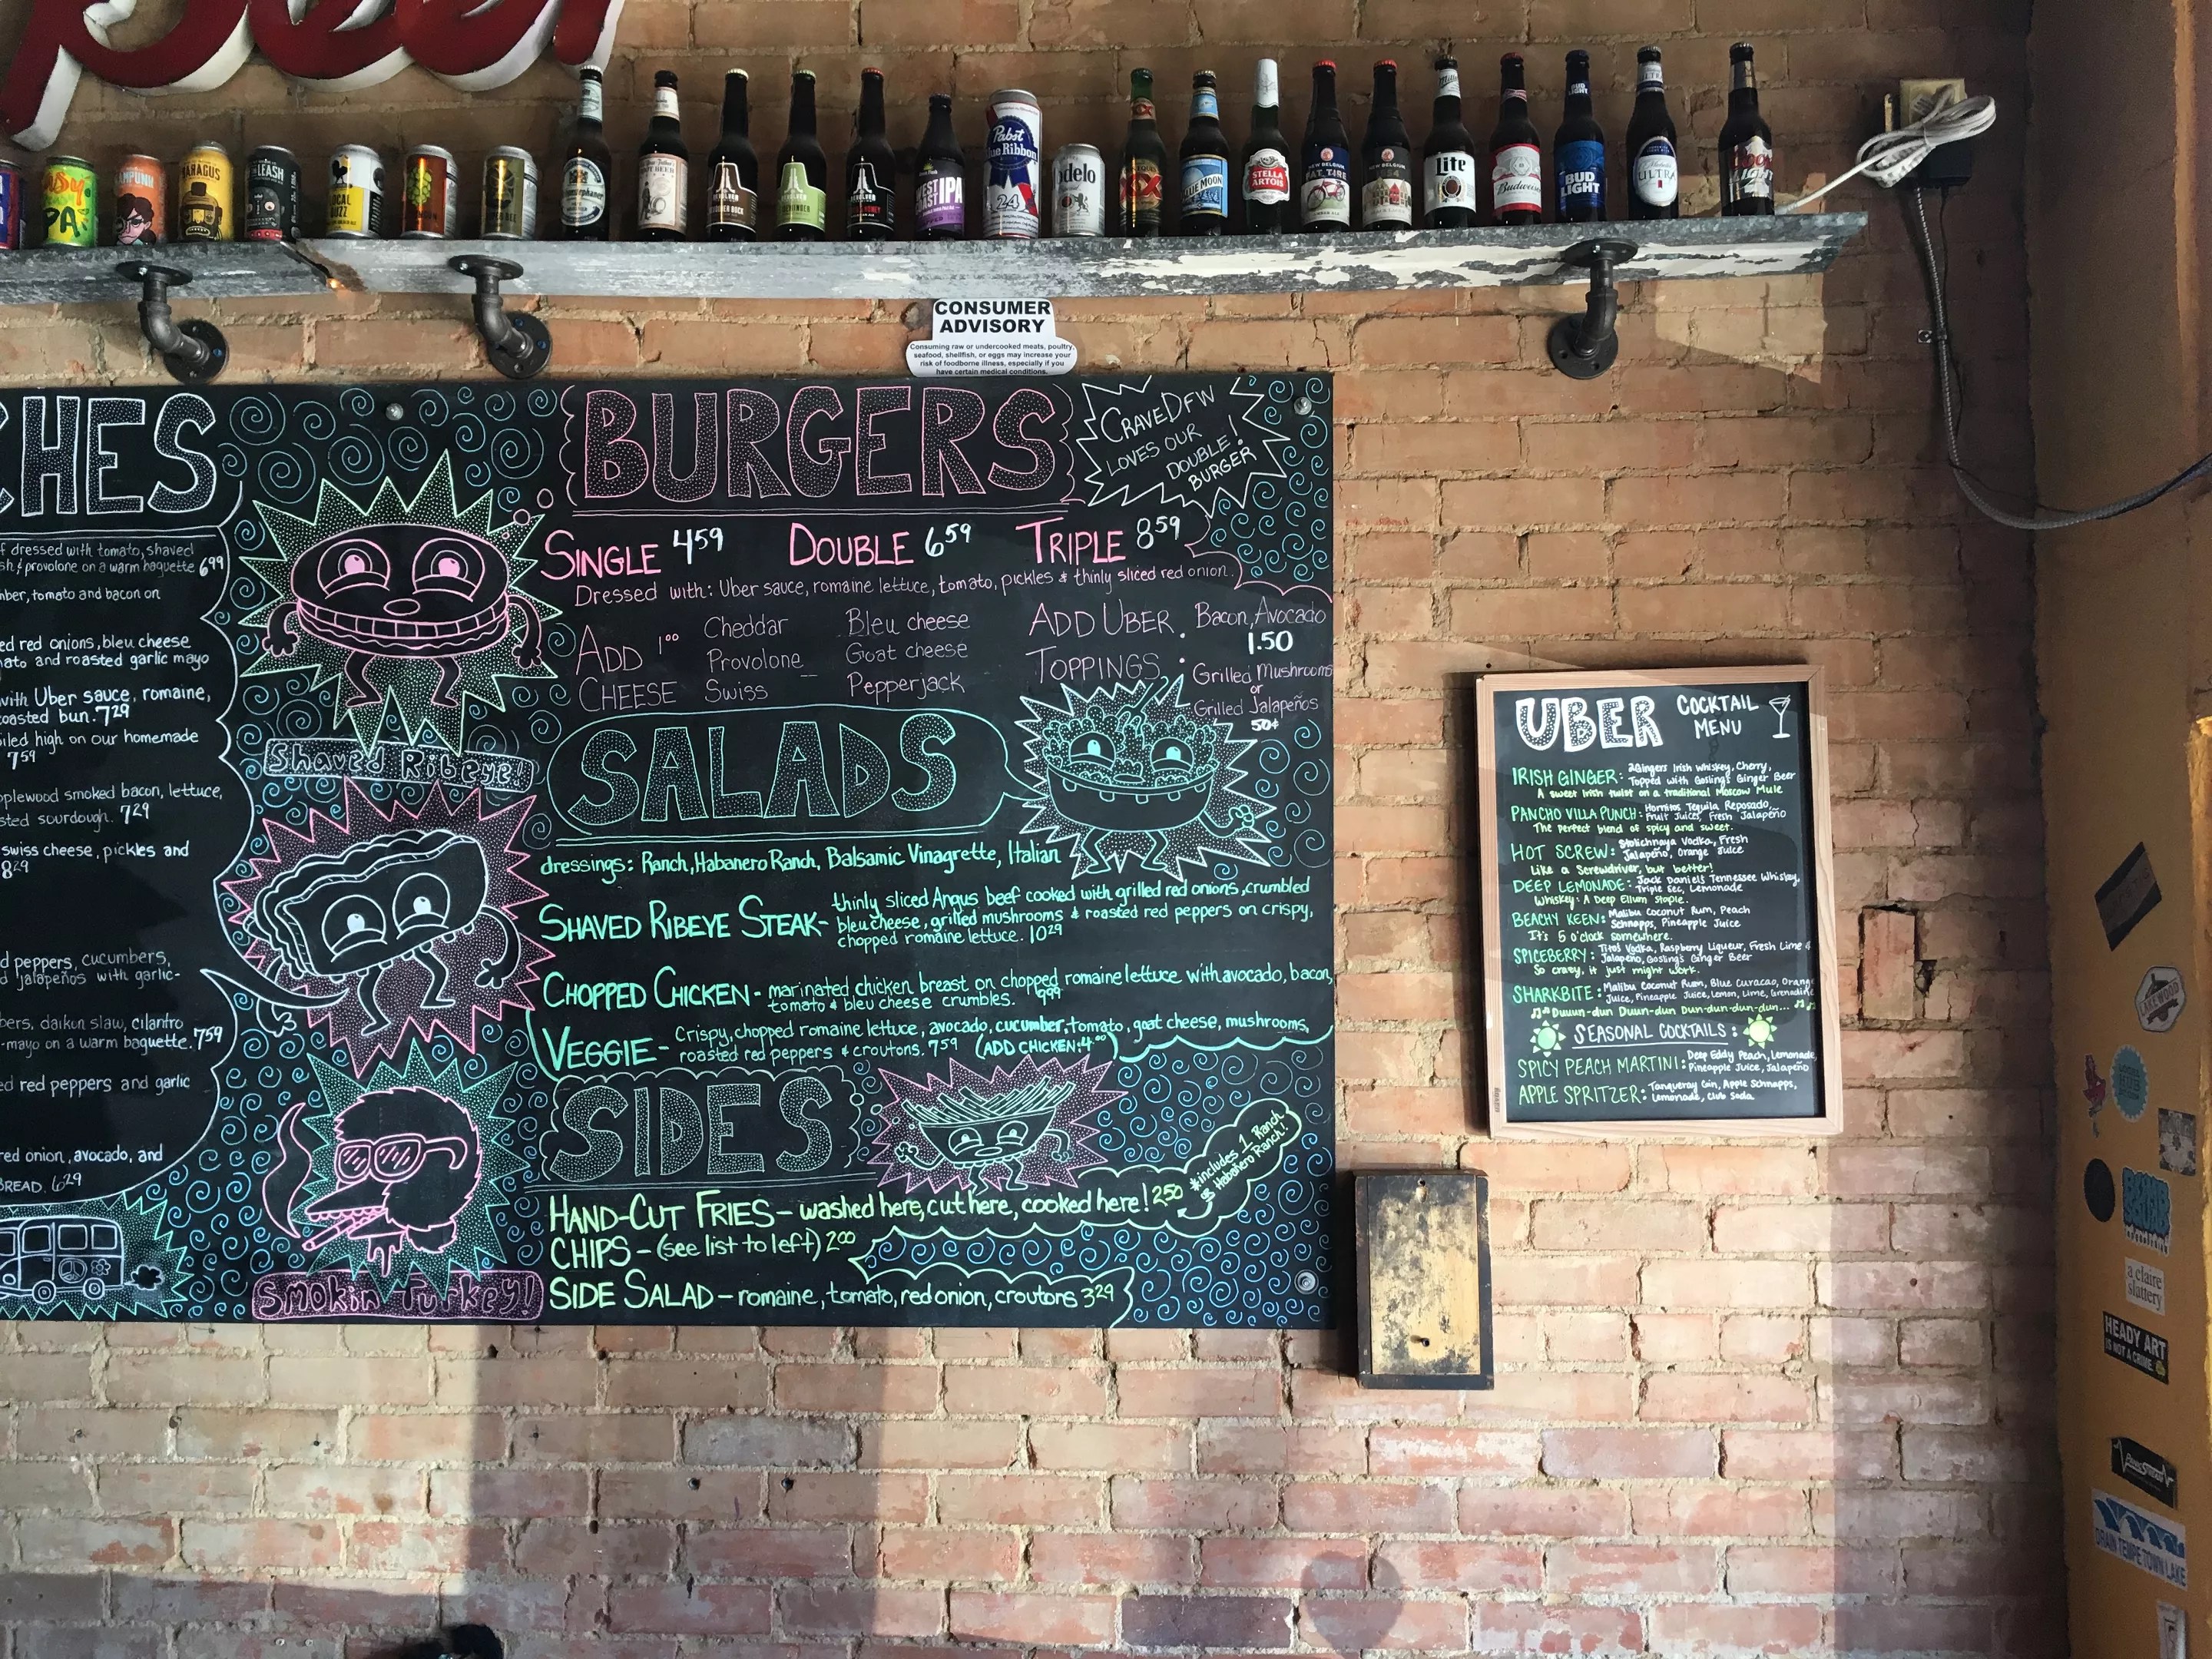 Beer
LOCAL
BUZZ
WEST
COAST IPA
Pabst
Blue Ribbon
24
Modelo
XX
BLUE MOON
STELLA
ARTOIS
NEW BELGIUM
FAT TIRE
NEW BELGIUM
Lite
Budweiser
BUD
LIGHT
ULTRA
COORS
LIGHT
CONSUMER
ADVISORY
Consuming raw or undercooked meats, poultry,
seafood, shellfish, or eggs may increase your
risk of foodborne illness, especially if you
have certain medical conditions.
CHES
f dressed with tomato, shaved
sh & provolone on a warm baguette 6.99
mber, tomato and bacon on
ed red onions, bleu cheese
mato and roasted garlic mayo
with Uber sauce, romaine,
oasted bun. 7.29
iled high on our homemade
7.59
pplewood smoked bacon, lettuce,
sted sourdough. 7.29
swiss cheese, pickles and
8.29
d peppers, cucumbers,
d jalapeños with garlic-
bers, daikon slaw, cilantro
-mayo on a warm baguette. 7.59
ed red peppers and garlic
red onion, avocado, and
BREAD. 6.29
Shaved Ribeye!
Smokin Turkey!
BURGERS
CRAVEDFW
LOVES OUR
DOUBLE!
BURGER
SINGLE 4.59 DOUBLE 6.59 TRIPLE 8.59
Dressed with: Uber sauce, romaine lettuce, tomato, pickles & thinly sliced red onion.
ADD 1.00 CHEESE
Cheddar Bleu cheese
Provolone Goat cheese
Swiss Pepperjack
ADD UBER TOPPINGS:
Bacon, Avocado
1.50
Grilled Mushrooms
or
Grilled Jalapeños
50¢
SALADS
dressings: Ranch, Habanero Ranch, Balsamic Vinagrette, Italian
SHAVED RIBEYE STEAK- thinly sliced Angus beef cooked with grilled red onions, crumbled
bleu cheese, grilled mushrooms & roasted red peppers on crispy,
chopped romaine lettuce. 10.29
CHOPPED CHICKEN- marinated chicken breast on chopped romaine lettuce with avocado, bacon,
tomato & bleu cheese crumbles. 9.99
VEGGIE- Crispy, chopped romaine lettuce, avocado, cucumber, tomato, goat cheese, mushrooms,
roasted red peppers & croutons. 7.59 (ADD CHICKEN: 4.00)
SIDES
HAND-CUT FRIES- washed here, cut here, cooked here! 2.50
*includes 1 Ranch
or Habañero Ranch!
CHIPS- (see list to left) 2.00
SIDE SALAD- romaine, tomato, red onion, croutons 3.29
UBER COCKTAIL
MENU
IRISH GINGER: 2Gingers Irish Whiskey, Cherry,
Topped with Goslings Ginger Beer
A sweet Irish twist on a traditional Moscow Mule
PANCHO VILLA PUNCH: Hornitos Tequila Reposado,
Fruit Juices, Fresh Jalapeño
The perfect blend of spicy and sweet.
HOT SCREW: Stolichnaya Vodka, Fresh
Jalapeño, Orange Juice
Like a Screwdriver, but better!
DEEP LEMONADE: Jack Daniels Tennessee Whiskey,
Triple Sec, Lemonade
Whiskey: A Deep Ellum Staple.
BEACHY KEEN: Malibu Coconut Rum, Peach
Schnapps, Pineapple Juice
It's 5 o'clock somewhere.
SPICEBERRY: Titos Vodka, Raspberry Liqueur, Fresh Lime &
Jalapeño, Gosling's Ginger Beer
So crazy, it just might work.
SHARKBITE: Malibu Coconut Rum, Blue Curacao, Orange
Juice, Pineapple Juice, Lemon, Lime, Grenadine
Duuun-dun Duun-dun Dun-dun-dun-dun...
SEASONAL COCKTAILS:
SPICY PEACH MARTINI: Deep Eddy Peach, Lemonade,
Pineapple Juice, Jalapeño
APPLE SPRITZER: Tanqueray Gin, Apple Schnapps,
Lemonade, Club Soda
LAKEWOOD
a claire
slattery
HEADY ART
IS NOT A CRIME.
DRAIN TEMPE TOWN LAKE